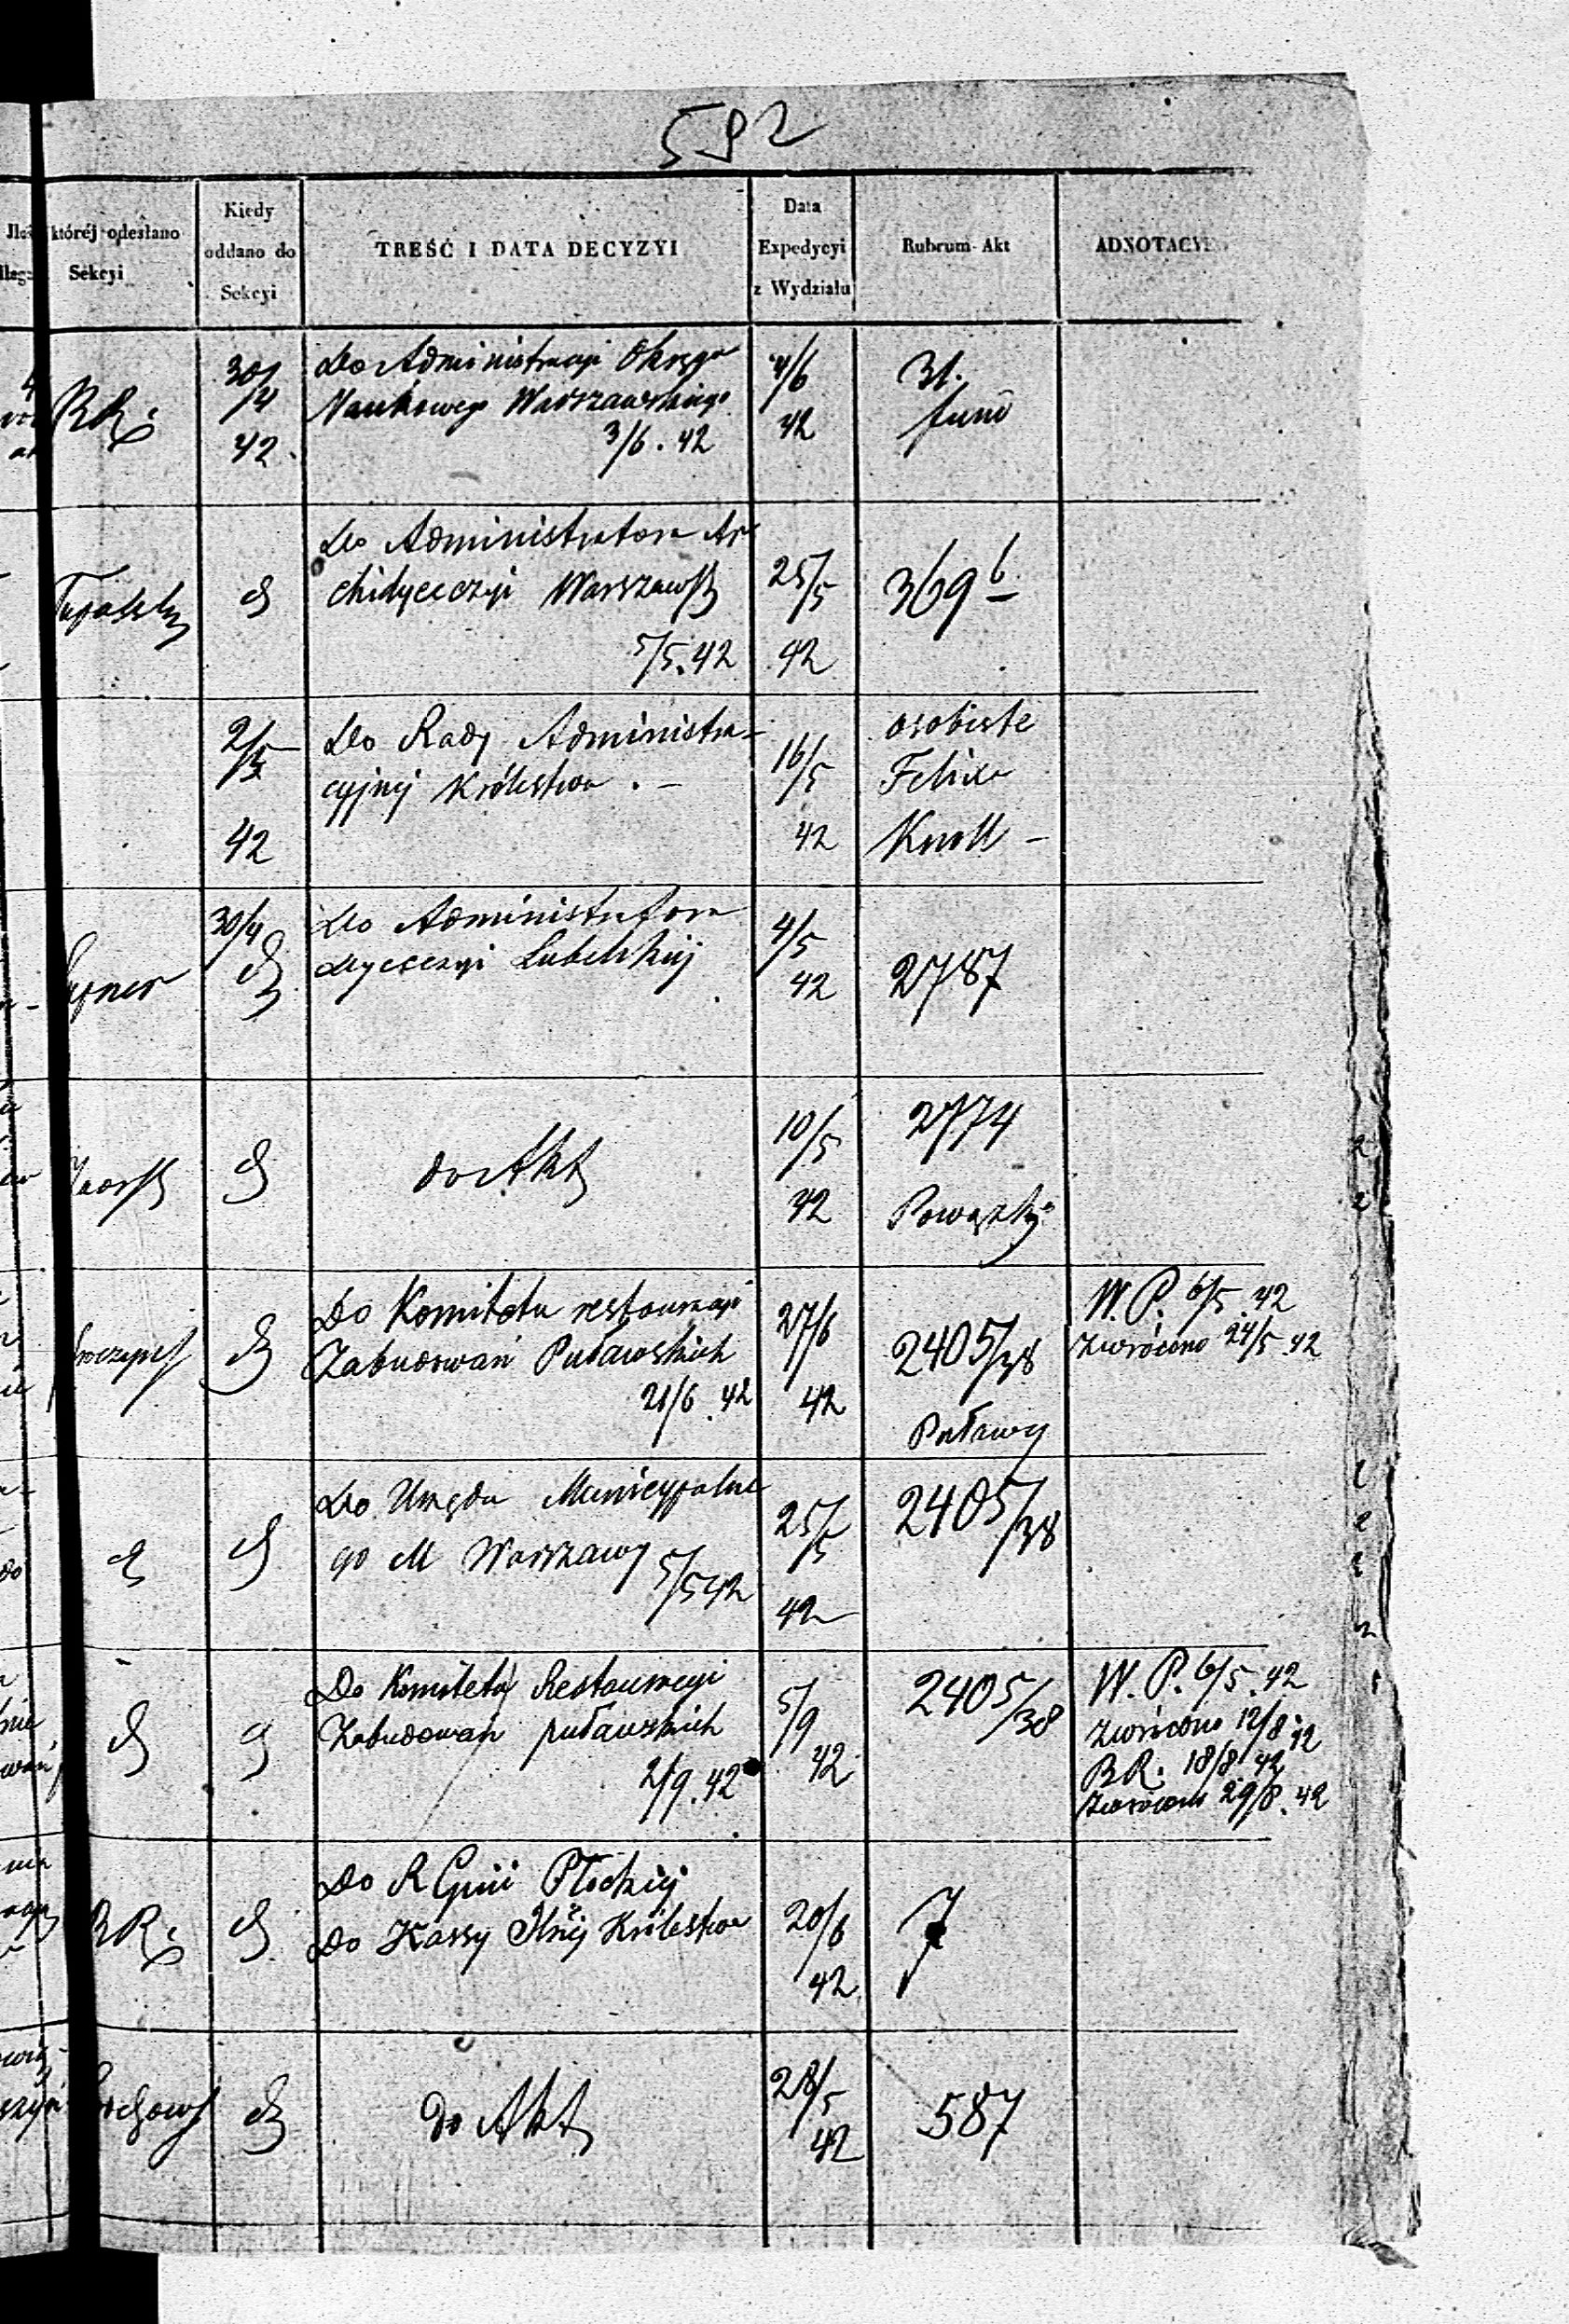 592
któréj odesłano
Sekcyi
Kiedy
oddano do
Sekcyi
TREŚĆ I DATA DECYZYI
Data
Expedycyi
z Wydziału
Rubrum Akt
ADNOTACYE
BR.
30/4
42
Do Administracyi Okręgu
Naukowego Warszawskiego
3/6. 42
4/6
42
31.
fund
Do Administratora Ar
chidyecezyi Warszawsk
5/5. 42
25/5
42
369 b
2/5
42
Do Rady Administra-
cyjnej Królestwa. -
16/5
42
osobiste
Felixa
Knoll -
30/4
Do Administratora
Dyecezyi Lubelskiej
4/5
42
2787
do Akt
10/5
42
2774
Powązki
Do Komitetu restauracyi
Zabudowań Puławskich
21/6. 42
27/6
42
2405/38
Puławy
W. P. 6/5. 42
Zwrócono 24/5. 42
Do Urzędu Municypalne
go M Warszawy 5/5 42
25/5
42
2405/38
Do Komitetu Restauracyi
Zabudowań puławskich
2/9. 42
5/9
42
2405/38
W. P. 6/5. 42
Zwrócono 12/8. 42
BR. 18/8 42
Zwrócono 29/8. 42
BR.
Do R Gnii Płockiej
Do Kassy Głnéj Królestwa
20/6
42
7
do Akt
28/5
42
587